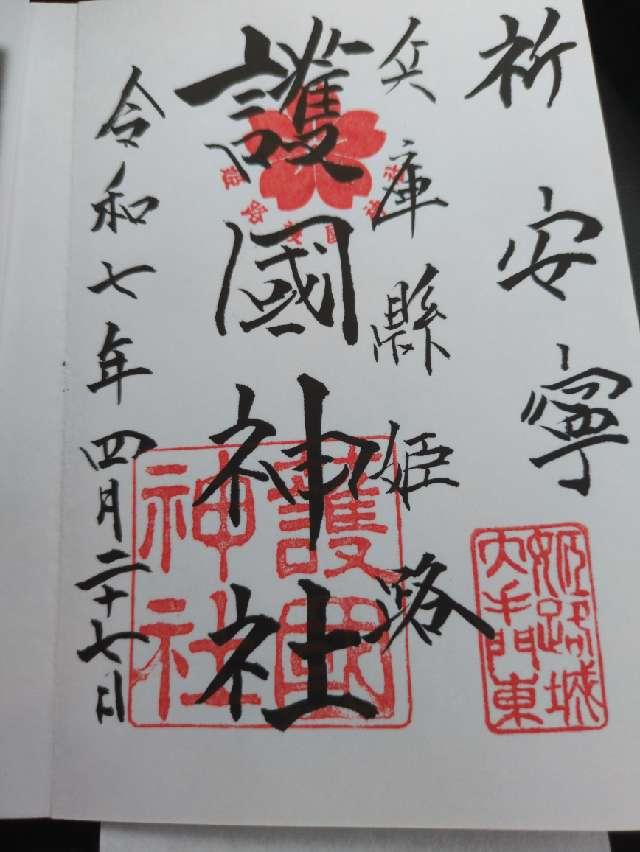 祈安寧
兵庫縣姫路
護國神社
令和七年四月二十七日
姫路城
大手門東
護國
神社